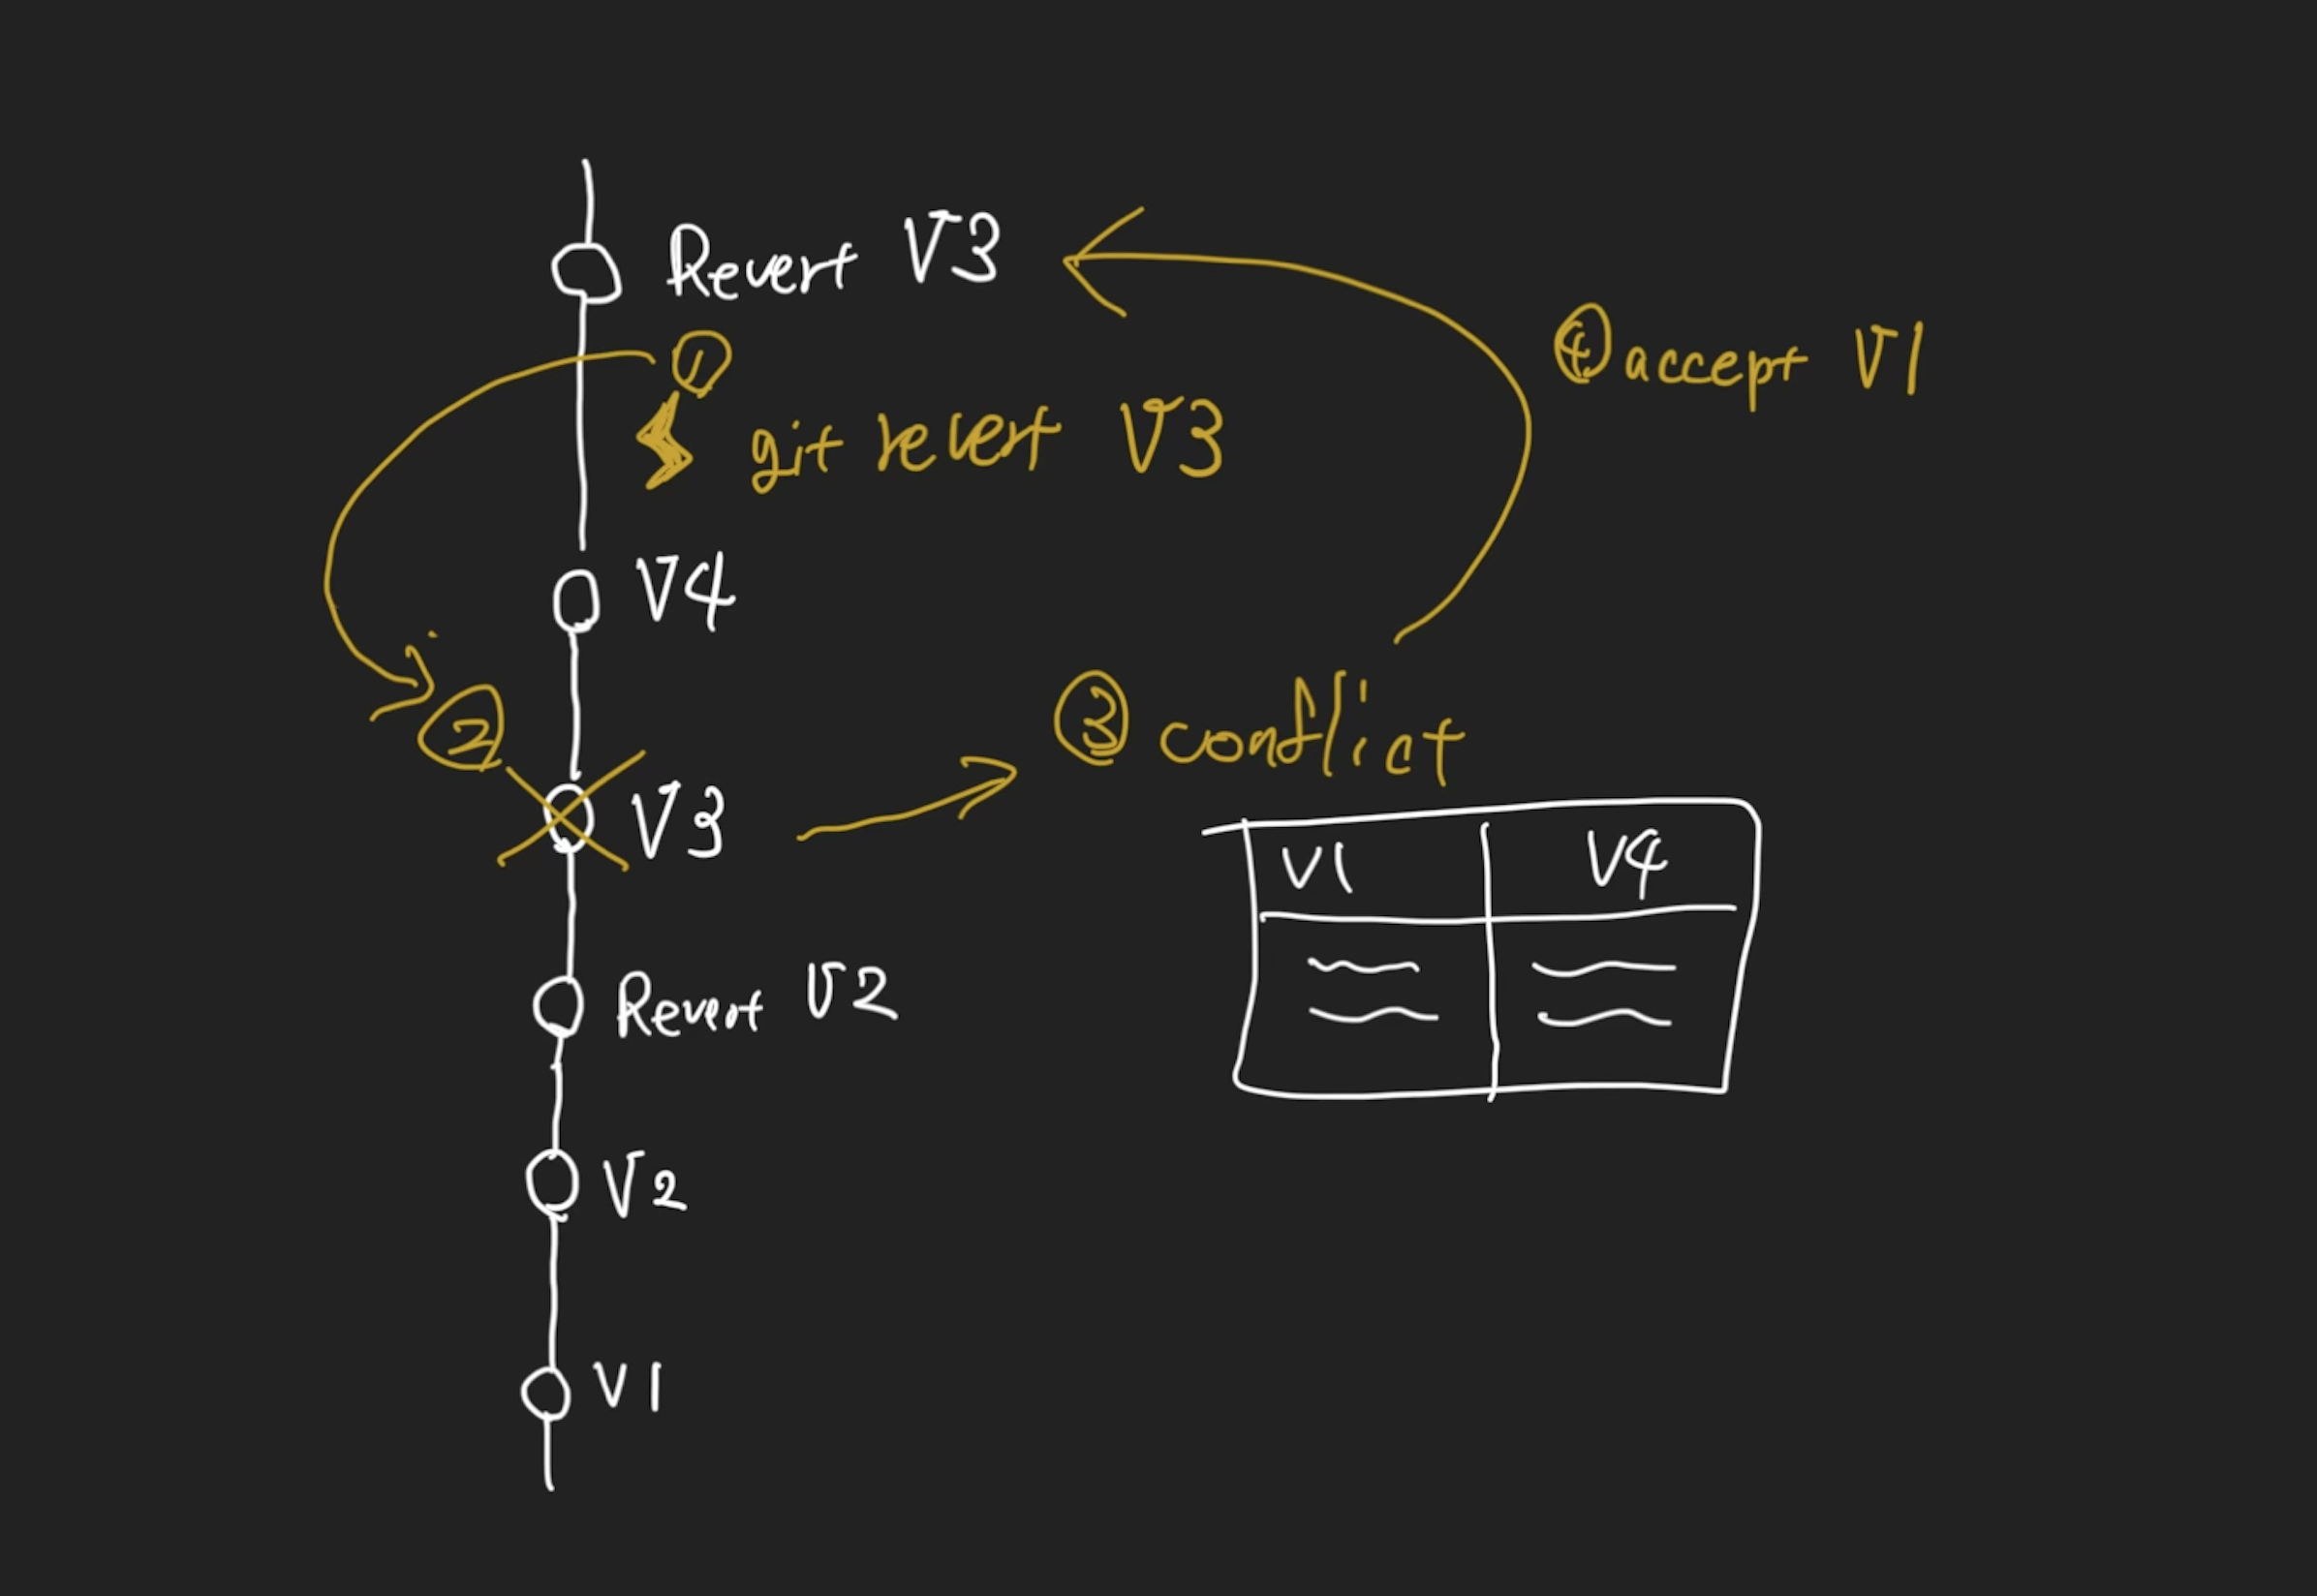 Revert V3
①
git revert V3
④ accept V1
V4
②
③ conflict
V3
V1 V4
Revert V2
V2
V1